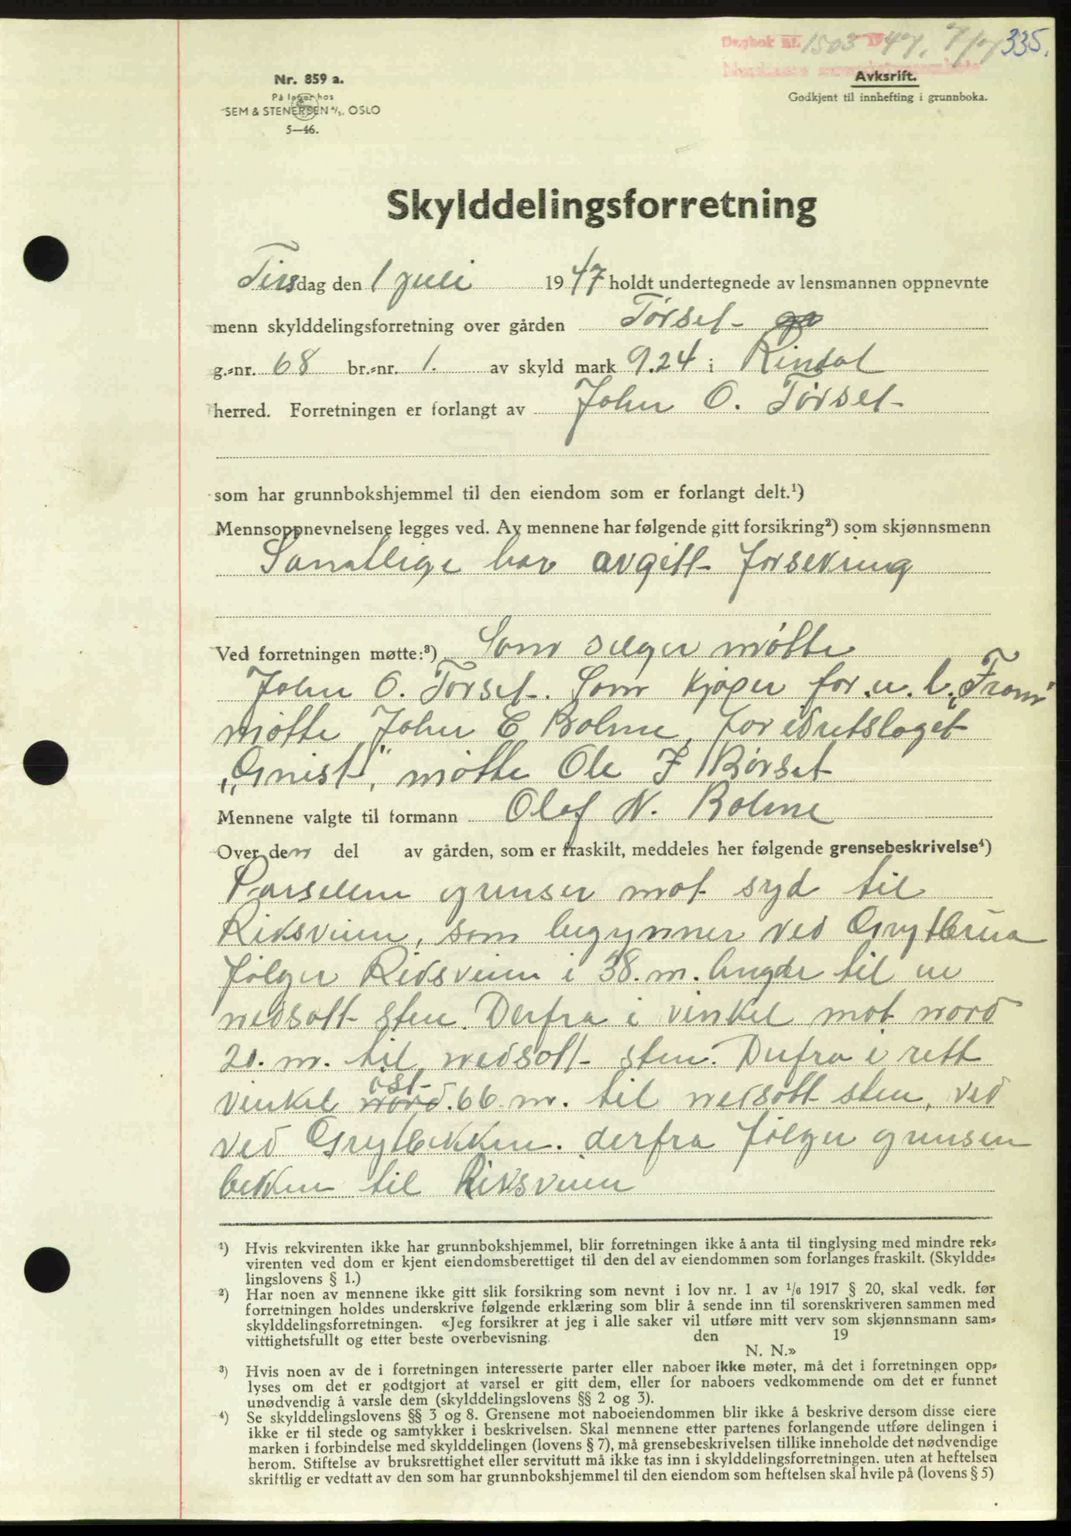 Dagbok nr. 1503 1947, 7/7 335.
Nr. 859 a.
På lager hos
SEM & STENERSEN A/S. OSLO
5—46.
Avksrift.
Godkjent til innhefting i grunnboka.
Skylddelingsforretning
Tirsdag den 1 juli 1947 holdt undertegnede av lensmannen oppnevnte
menn skylddelingsforretning over gården Tørset
g.-nr. 68 br.-nr. 1. av skyld mark 9.24 i Rindal
herred. Forretningen er forlangt av John O. Tørset
som har grunnbokshjemmel til den eiendom som er forlangt delt.¹)
Mennsoppnevnelsene legges ved. Av mennene har følgende gitt forsikring²) som skjønnsmenn
Samtlige har avgitt forsikring
Ved forretningen møtte:³) Som selger møtte
John O. Tørset. Som kjøper for u. l. „Fram"
møtte John E Bolme, for idretslaget
„Gnist", møtte Ole J Børset
Mennene valgte til formann Olaf N. Bolme
Over den del av gården, som er fraskilt, meddeles her følgende grensebeskrivelse⁴)
Parsellen grenser mot syd til
Riksveien, som begynner ved Grytbrua
følger Riksveien i 38. m. lengde til en
nedsatt sten. Derfra i vinkel mot nord
20. m. til nedsatt sten. Derfra i rett
vinkel nord øst 66 m. til nedsatt sten, ved
ved Grytbekken. derfra følger grensen
bekken til Riksveien
¹) Hvis rekvirenten ikke har grunnbokshjemmel, blir forretningen ikke å anta til tinglysing med mindre rek-
virenten ved dom er kjent eiendomsberettiget til den del av eiendommen som forlanges fraskilt. (Skyldde-
lingslovens § 1.)
²) Har noen av mennene ikke gitt slik forsikring som nevnt i lov nr. 1 av 1/6 1917 § 20, skal vedk. før
forretningen holdes underskrive følgende erklæring som blir å sende inn til sorenskriveren sammen med
skylddelingsforretningen. «Jeg forsikrer at jeg i alle saker vil utføre mitt verv som skjønnsmann sam-
vittighetsfullt og etter beste overbevisning. den 19
N. N.»
³) Hvis noen av de i forretningen interesserte parter eller naboer ikke møter, må det i forretningen opp-
lyses om det er godtgjort at varsel er gitt dem, eller for naboers vedkommende om det er funnet
unødvendig å varsle dem (skylddelingslovens §§ 2 og 3).
⁴) Se skylddelingslovens §§ 3 og 8. Grensene mot naboeiendommen blir ikke å beskrive dersom disse eiere
ikke er til stede og samtykker i beskrivelsen. Skal mennene etter partenes forlangende utføre delingen i
marken i forbindelse med skylddelingen (lovens § 7), må grensebeskrivelsen tillike inneholde det nødvendige
herom. Stiftelse av bruksrettighet eller servitutt må ikke tas inn i skylddelingsforretningen. uten at heftelsen
skriftlig er vedtatt av den som har grunnbokshjemmel til den eiendom som heftelsen skal hvile på (lovens § 5)